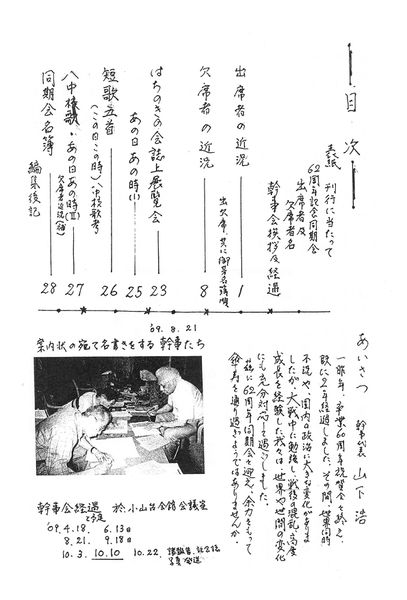 目次
表紙 刊行に当たって
62周年記念同期会
出席者及
欠席者名
幹事会挨拶及経過
出席者の近況 1
欠席者の近況 8
はちのき会誌上展覧会 23
あの日あの時(I) 25
短歌五首 26
(この日この時)八中校歌考
八中校歌・あの日あの時(II) 27
同期会名簿 28
編集後記
あいさつ 幹事代表 山下 浩
一昨年、卒業60周年祝賀会を終え、
既に2年経過しました。その間、世界同時
不況や、国内の政治に大きな変化がありま
したが、大戦中に勉強し、戦後の混乱、高度
成長を経験した我々は世界や世間の変化
にも充分対応して過ごしました。
茲に62周年同期会を迎え、余力をもって
傘寿を通り過ぎようではありませんか。
'09.8.21
案内状の宛て名書きをする幹事たち
幹事会経過と予定 於:小山台会館会議室
'09.4.18. 6.13日
8.21 9.18日
10.3. 10.10 10.22.